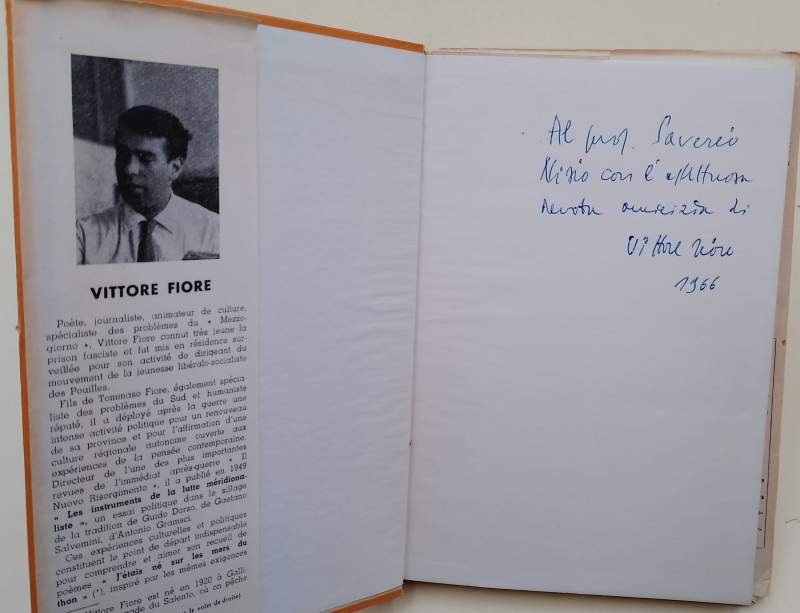 VITTORE FIORE
Poète, journaliste, animateur de culture,
spécialiste des problèmes du « Mezzo-
giorno », Vittore Fiore connut très jeune la
prison fasciste et fut mis en résidence sur-
veillée pour son activité de dirigeant du
mouvement de la jeunesse libéralo-socialiste
des Pouilles.
Fils de Tommaso Fiore, également spécia-
liste des problèmes du Sud et humaniste
réputé, il a déployé après la guerre une
intense activité politique pour un renouveau
de sa province et pour l'affirmation d'une
culture régionale autonome ouverte aux
expériences de la pensée contemporaine.
Directeur de l'une des plus importantes
revues de l'immédiat après-guerre « Il
Nuovo Risorgimento », il a publié en 1949
« Les instruments de la lutte méridiona-
liste », un essai politique dans le sillage
de la tradition de Guido Dorso, de Gaetano
Salvemini, d'Antonio Gramsci.
Ces expériences culturelles et politiques
constituent le point de départ indispensable
pour comprendre et aimer son recueil de
poèmes « J'étais né sur les mers du
thon » (*), inspiré par les mêmes exigences
Vittore Fiore est né en 1920 à Galli-
du Salento, où on pêche
le volet de droite)
Al prof. Saverio
Nisio con l'affettuosa
devota amicizia di
Vittore Fiore
1966